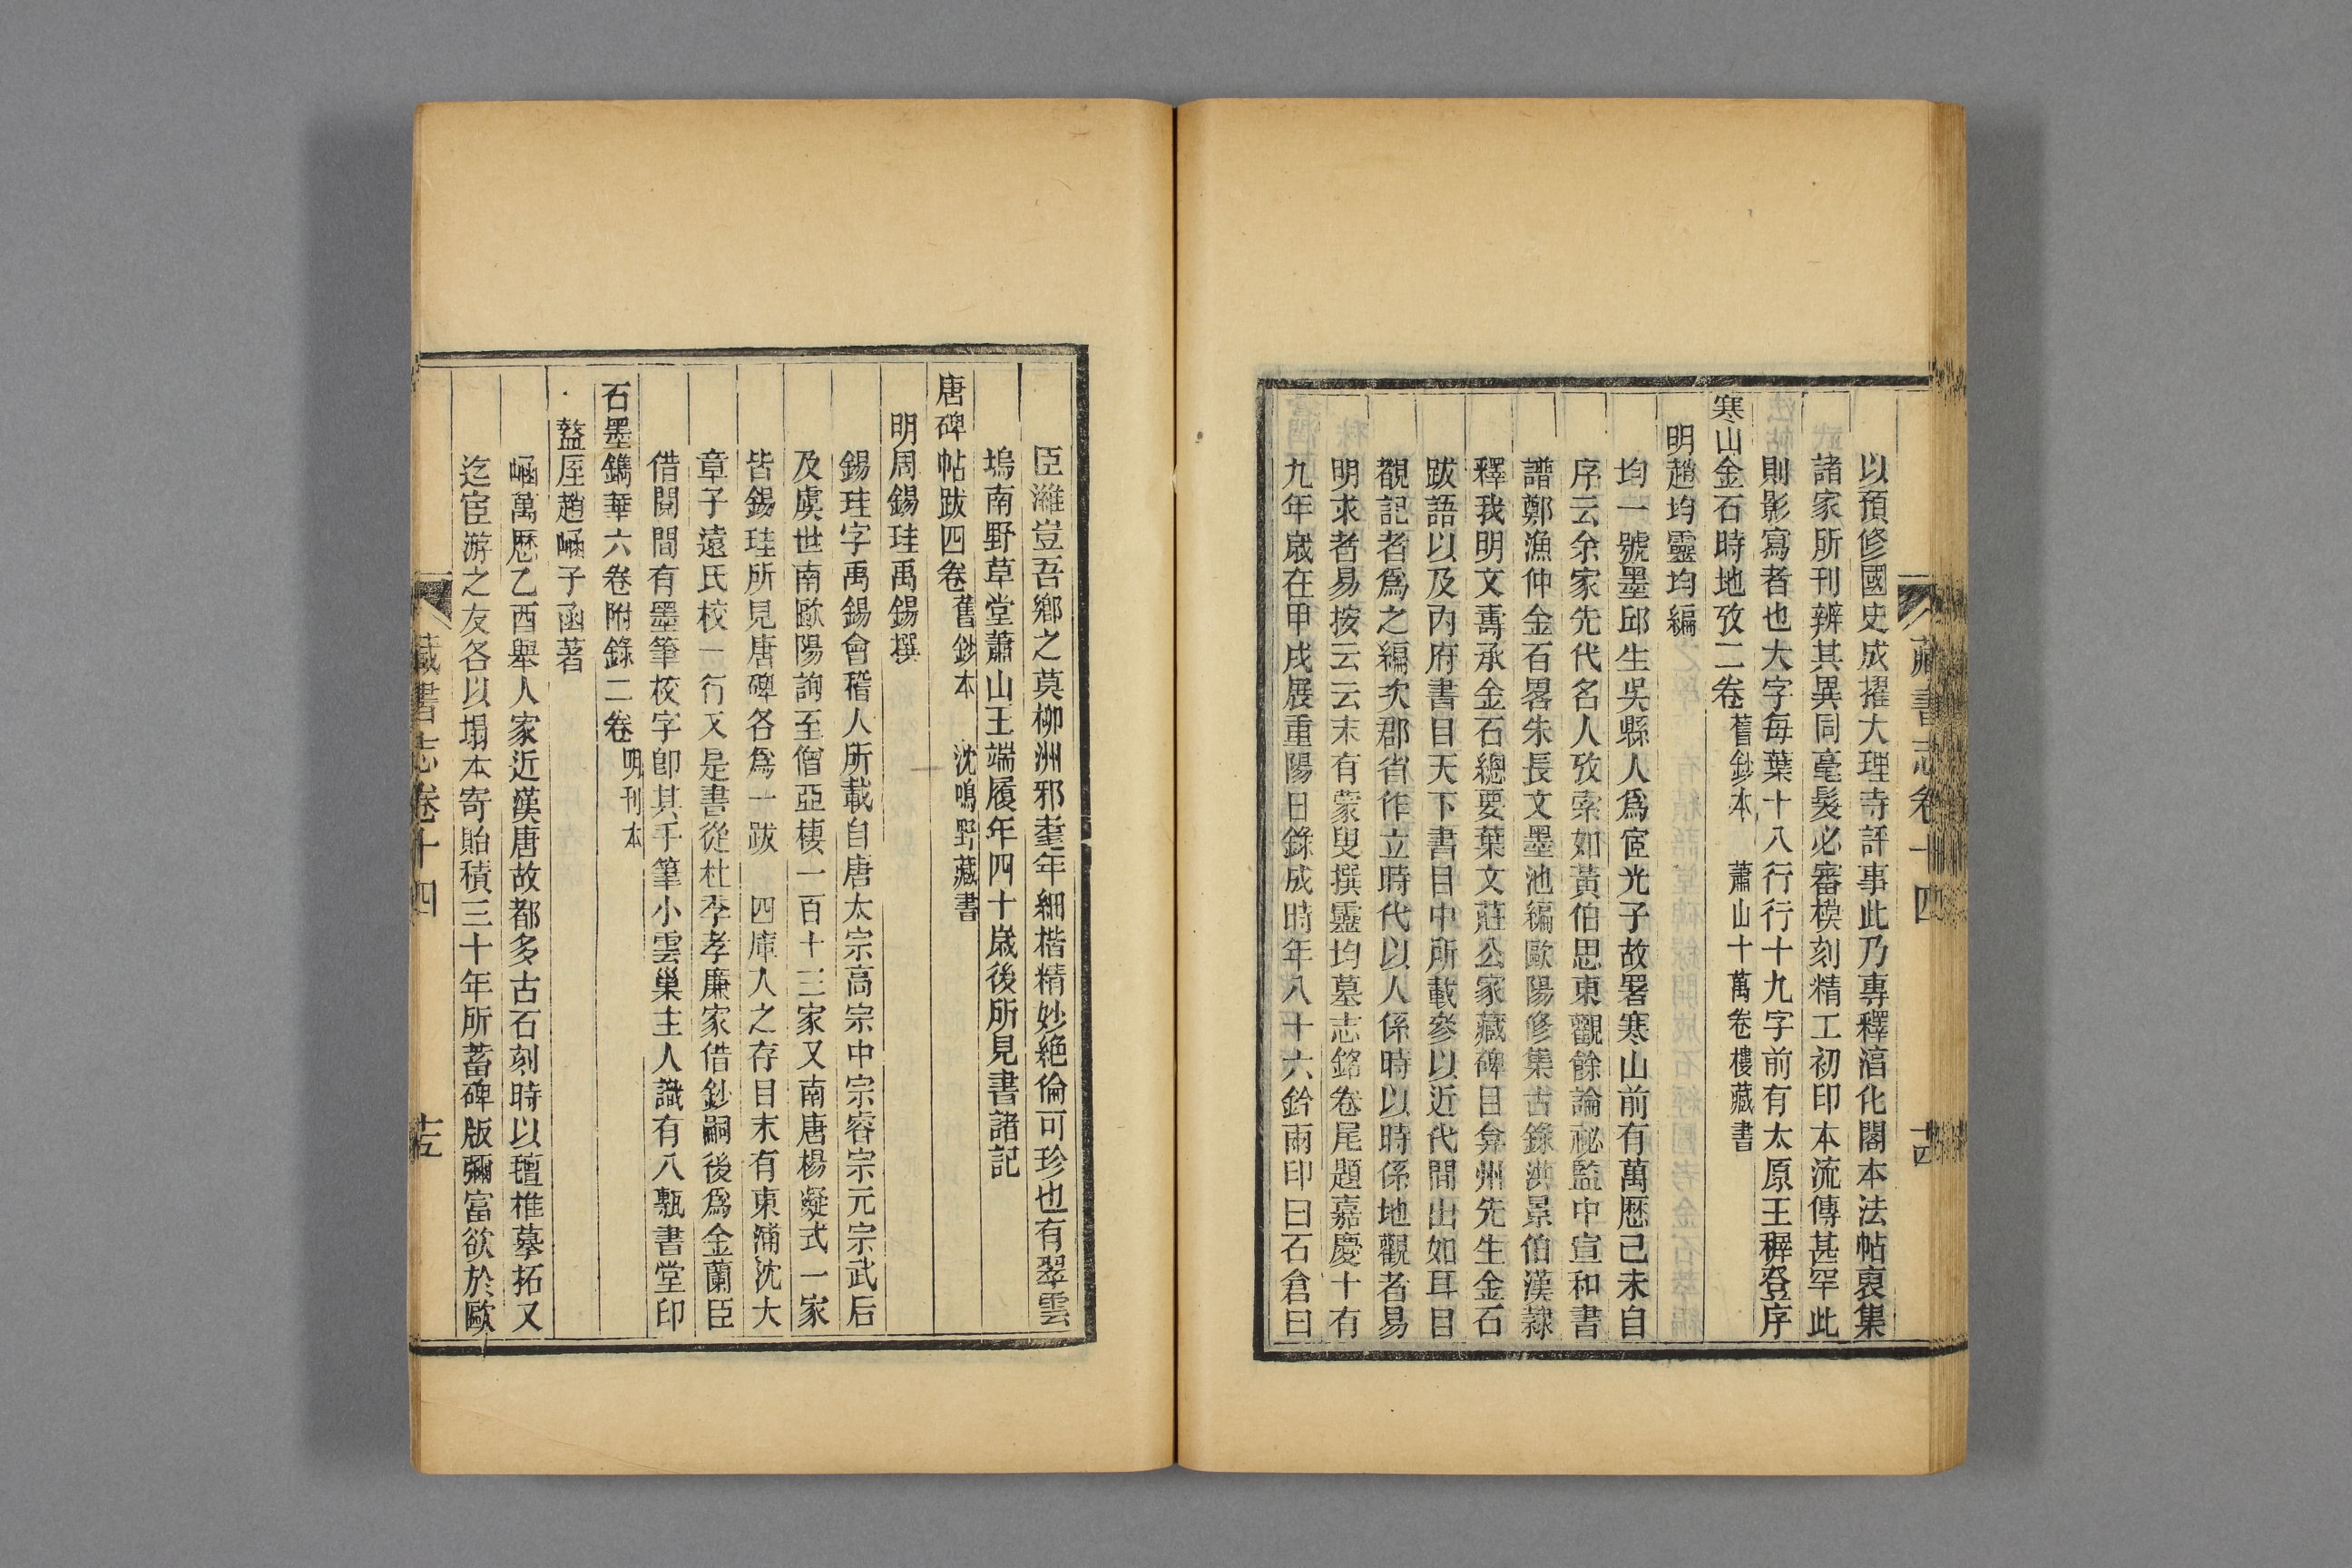 藏書志卷十四
以預修國史成擢大理寺評事此乃專釋淳化閣本法帖裒集
諸家所刊辨其異同毫髮必審模刻精工初印本流傳甚罕此
則影寫者也大字每葉十八行行十九字前有太原王穉登序
寒山金石時地攷二卷 舊鈔本 蕭山十萬卷樓藏書
明趙均靈均編
均一號墨邱生吳縣人爲宧光子故署寒山前有萬歴己未自
序云余家先代名人攷索如黃伯思東觀餘論祕監中宣和書
譜鄭漁仲金石畧朱長文墨池編歐陽修集古錄洪景伯漢隸
釋我明文壽承金石總要葉文莊公家藏碑目弇州先生金石
跋語以及內府書目天下書目中所載參以近代間出如耳目
覩記者爲之編次郡省作立時代以人係時以時係地觀者易
明求者易按云云末有蒙叟撰靈均墓志銘卷尾題嘉慶十有
九年歲在甲戌展重陽日錄成時年八十六鈐兩印曰石倉曰
臣濰豈吾鄉之莫柳洲邪耋年細楷精妙絶倫可珍也有翠雲
塢南野草堂蕭山王端履年四十歲後所見書諸記
唐碑帖跋四卷 舊鈔本 沈鳴野藏書
明周錫珪禹錫撰
錫珪字禹錫會稽人所載自唐太宗高宗中宗睿宗元宗武后
及虞世南歐陽詢至僧亞棲一百十三家又南唐楊凝式一家
皆錫珪所見唐碑各爲一跋 四庫入之存目末有東浦沈大
章子遠氏校一行又是書從杜李孝廉家借鈔嗣後爲金蘭臣
借閱間有墨筆校字卽其手筆小雲巢主人識有八甎書堂印
石墨鐫華六卷附錄二卷 明刊本
盩厔趙崡子函著
崡萬歴乙酉舉人家近漢唐故都多古石刻時以𣰽椎摹拓又
迄宦游之友各以塌本寄貽積三十年所蓄碑版彌富欲於歐
藏書志卷十四